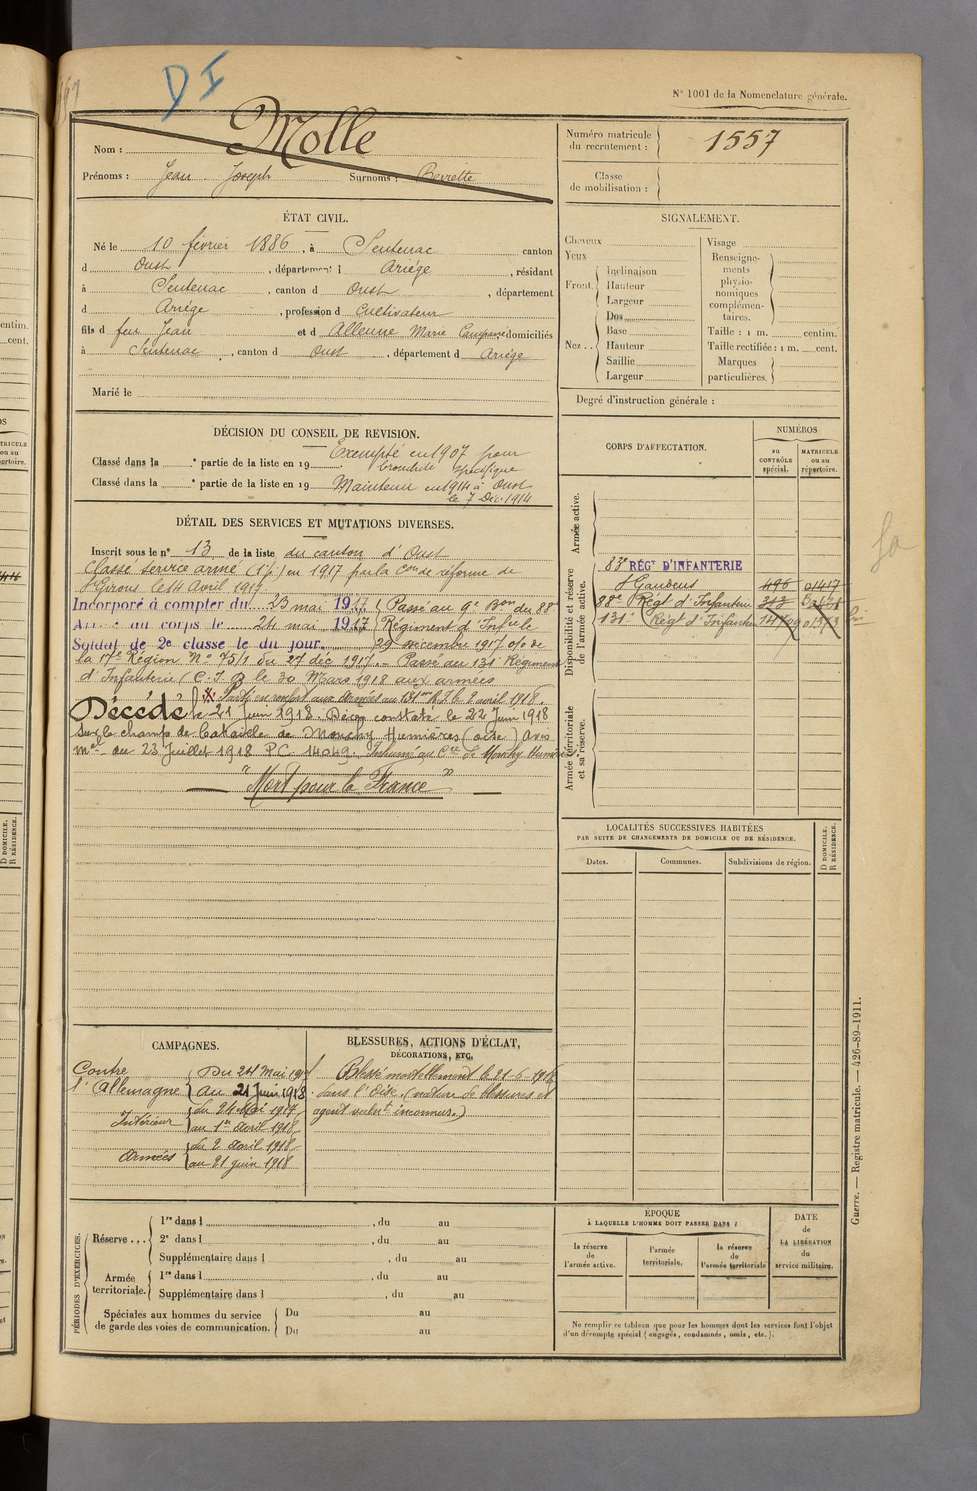 D I
N° 1001 de la Nomenclature générale.
Nom : Molle
Prénoms : Jean Joseph Surnoms :
Numéro matricule du recrutement : 1557
Classe de mobilisation :
ÉTAT CIVIL.
Né le 10 février 1886, à Sentenac canton
d Oust, département d Ariège, résidant
à Sentenac, canton d Oust, département
d Ariège, profession d Cultivateur
fils d feu Jean et d Alleune Marie domiciliés
à Sentenac, canton d Oust, département d Ariège
Marié le
SIGNALEMENT.
Cheveux
Yeux
Front. Inclinaison
Hauteur
Largeur
Nez.. Dos
Base
Hauteur
Saillie
Largeur
Visage
Renseignements physionomiques complémentaires.
Taille : 1 m. centim.
Taille rectifiée : 1 m. cent.
Marques particulières.
Degré d'instruction générale :
DÉCISION DU CONSEIL DE RÉVISION.
Exempté en 1907 pour
Classé dans la e partie de la liste en 19 bronchite spécifique
Classé dans la e partie de la liste en 19 Maintenu en 1914 à Oust
le 7 Déc 1914
DÉTAIL DES SERVICES ET MUTATIONS DIVERSES.
Inscrit sous le n° 13 de la liste du canton d'Oust
Classé service armé (1 p.) en 1917 par la Con de réforme de
St Girons le 14 Avril 1917
Incorporé à compter du 23 mai 1917 (Passé au 9e Bon du 88
Arrivé au corps le 24 mai 1917 Régiment d'Infrie le
Soldat de 2e classe le du jour. 29 décembre 1917 o/o de
la 17e Région N° 75/1 du 27 déc 1917. - Passé au 131 Régiment
d'Infanterie (C.I.D le 30 Mars 1918 aux armées
Parti en renfort aux armées au 131me R.I. le 2 avril 1918.
Décédé le 21 Juin 1918. Décès constaté le 22 Juin 1918
sur le champ de bataille de Monchy Humières (oise) Avis
mel du 23 Juillet 1918 P.C. 14049. Inhumé au Cre de Monchy Humières
"Mort pour la France"
CORPS D'AFFECTATION.
NUMÉROS
au CONTRÔLE spécial.
MATRICULE ou au répertoire.
Armée active.
Disponibilité et réserve de l'armée active.
83e RÉGt D'INFANTERIE
St Gaudens 496 01417
88e Régt d'Infanterie 313
131e Régt d'Infanterie
Armée territoriale et sa réserve.
LOCALITÉS SUCCESSIVES HABITÉES
PAR SUITE DE CHANGEMENTS DE DOMICILE OU DE RÉSIDENCE.
Dates.
Communes.
Subdivisions de région.
D DOMICILE. R RÉSIDENCE.
CAMPAGNES.
Contre l'Allemagne
Du 24 Mai 1917
au 21 Juin 1918
Intérieur
du 24 Mai 1917
au 1er Avril 1918
Armées
du 2 Avril 1918
au 21 juin 1918
BLESSURES, ACTIONS D'ÉCLAT,
DÉCORATIONS, ETC.
Blessé mortellement le 21-6-1918
dans l'Oise. (nature de blessures et
agent vulnt inconnus.)
PÉRIODES D'EXERCICES.
Réserve ... 1re dans l , du au
2e dans l , du au
Supplémentaire dans l , du au
Armée territoriale. 1re dans l , du au
Supplémentaire dans l , du au
Spéciales aux hommes du service de garde des voies de communication.
Du au
Du au
ÉPOQUE
À LAQUELLE L'HOMME DOIT PASSER DANS :
la réserve de l'armée active.
l'armée territoriale.
la réserve de l'armée territoriale
DATE de LA LIBÉRATION du service militaire.
Ne remplir ce tableau que pour les hommes dont les services font l'objet
d'un décompte spécial (engagés, condamnés, omis, etc.).
Guerre. — Registre matricule. — 426-89-1911.